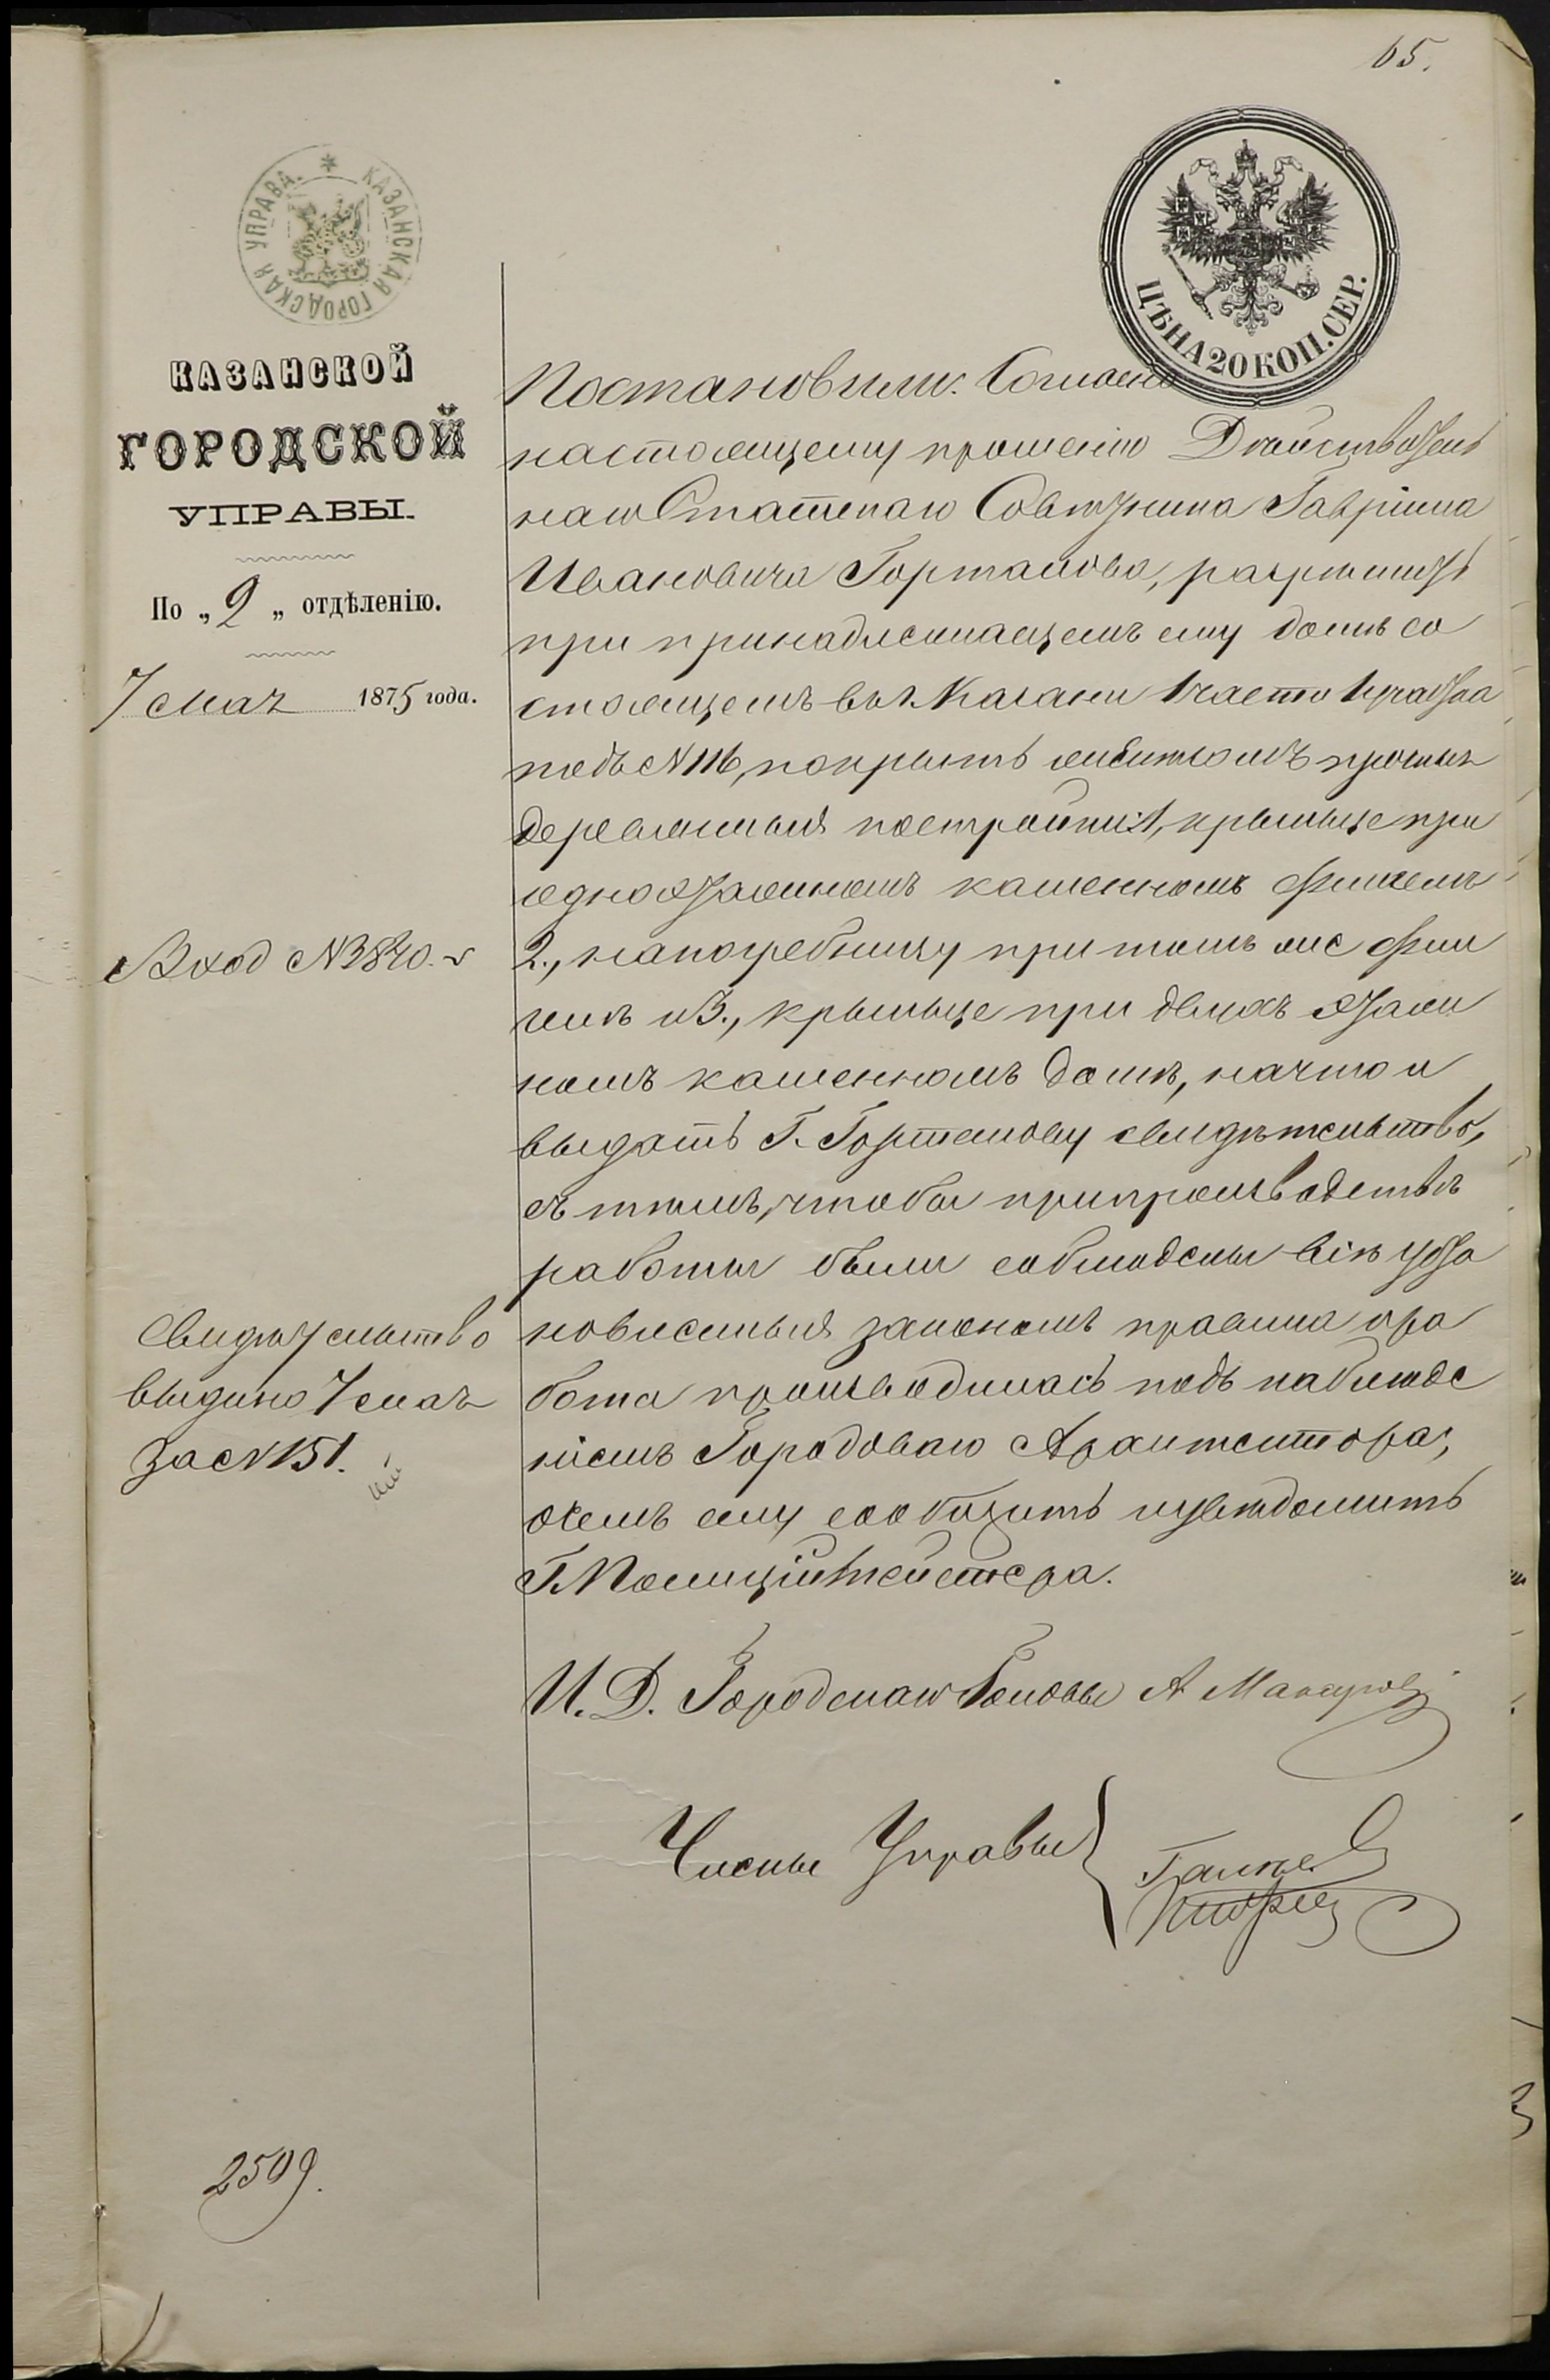 65.
КАЗАНСКАЯ ГОРОДСКАЯ УПРАВА.
ЦѢНА 20 КОП. СЕР.
КАЗАНСКОЙ
ГОРОДСКОЙ
УПРАВЫ.
По „2„ отдѣленію.
7 мая 1875 года.
Вход №3840.
Свидѣтельство
выдано 7 мая
за №151.
2509.
Постановили: Согласно
настоящему прошенію Дѣйствитель
наго Статскаго Совѣтника Гавріила
Ивановича Горталова, разрѣшить
при принадлежащемъ ему домѣ со
стоящемъ въ г. Казани 1 части 1 квартала
подъ №116, покрыть желѣзомъ прочныя
деревянныя постройки: 1, крыльце при
одноэтажномъ каменномъ флигелѣ
2., напогребницу при томъ же фли
гелѣ и 3., крыльце при двухъ этаж
номъ каменномъ домѣ, на что и
выдать Г. Горталову свидѣтельство,
съ тѣмъ, чтобы при производствѣ
работы были соблюдены всѣ уста
новленныя закономъ правила и ра
бота производилась подъ наблюде
ніемъ Городоваго Архитектора;
о чемъ ему сообщить и увѣдомить
Г. Полиційместера.
И. Д. Городскаго Головы А
Члены Управы